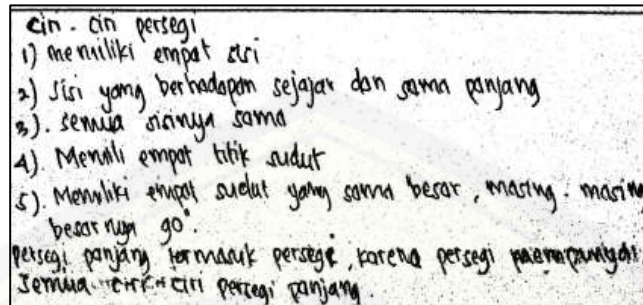 ciri - ciri persegi
1) memiliki empat sisi
2) sisi yang berhadapan sejajar dan sama panjang
3). semua sisinya sama
4) Memili empat titik sudut
5). Memiliki empat sudut yang sama besar, masing - masing
besarnya 90°.
persegi panjang termasuk persegi, karena persegi mempunyai
semua ciri - ciri persegi panjang.